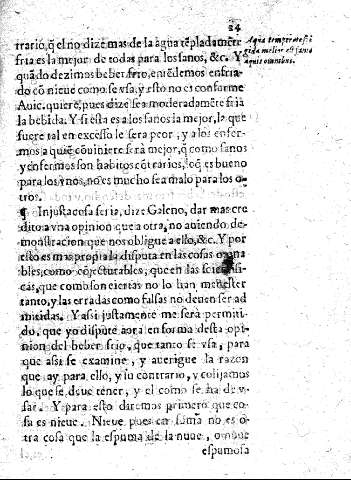 24
trario, q̃ el no dize mas de la agua tẽpladamẽte
fria es la mejor de todas para los sanos, &c. Y
quãdo dezimos beber frio, entẽdemos enfria-
do cõ nieue como se vsa, y esto no es conforme
Auic. quiere, pues dize sea moderadamẽte fria
la bebida. Y si esta es a los sanos la mejor, la que
fuere tal en excesso le sera peor, y a los enfer-
mos a quiẽ cõuiniere sera mejor, q̃ como sanos
y enfermos son habitos cõtrarios, lo q̃ es bueno
para los vnos, no es mucho sea malo para los o-
tros.
¶ Injusta cosa seria, dize Galeno, dar mas cre
dito a vna opinion que a otra, no auiendo de-
monstracion que nos obligue a ello, &c. Y por
esto es mas propia la disputa en las cosas
bles, como cõjecturables, que en las sciẽ
cas, que como son ciertas no lo han menester
tanto, y las erradas como falsas no deuen ser ad
mitidas. Y assi justamente me sera permiti-
do, que yo dispute aora en forma desta opi-
nion del beber frio, que tanto se vsa, para
que assi se examine, y auerigue la razon
que ay para ello, y su contrario, y colijamos
lo que se deue tener, y el como se ha de v-
sar. Y para esto diremos primero que co-
sa es nieue. Nieue pues en suma no es o-
tra cosa que la espuma de la nuue, o nuue
espumosa
Aqua temperate fri
gida melior est sanis
aquis omnibus.